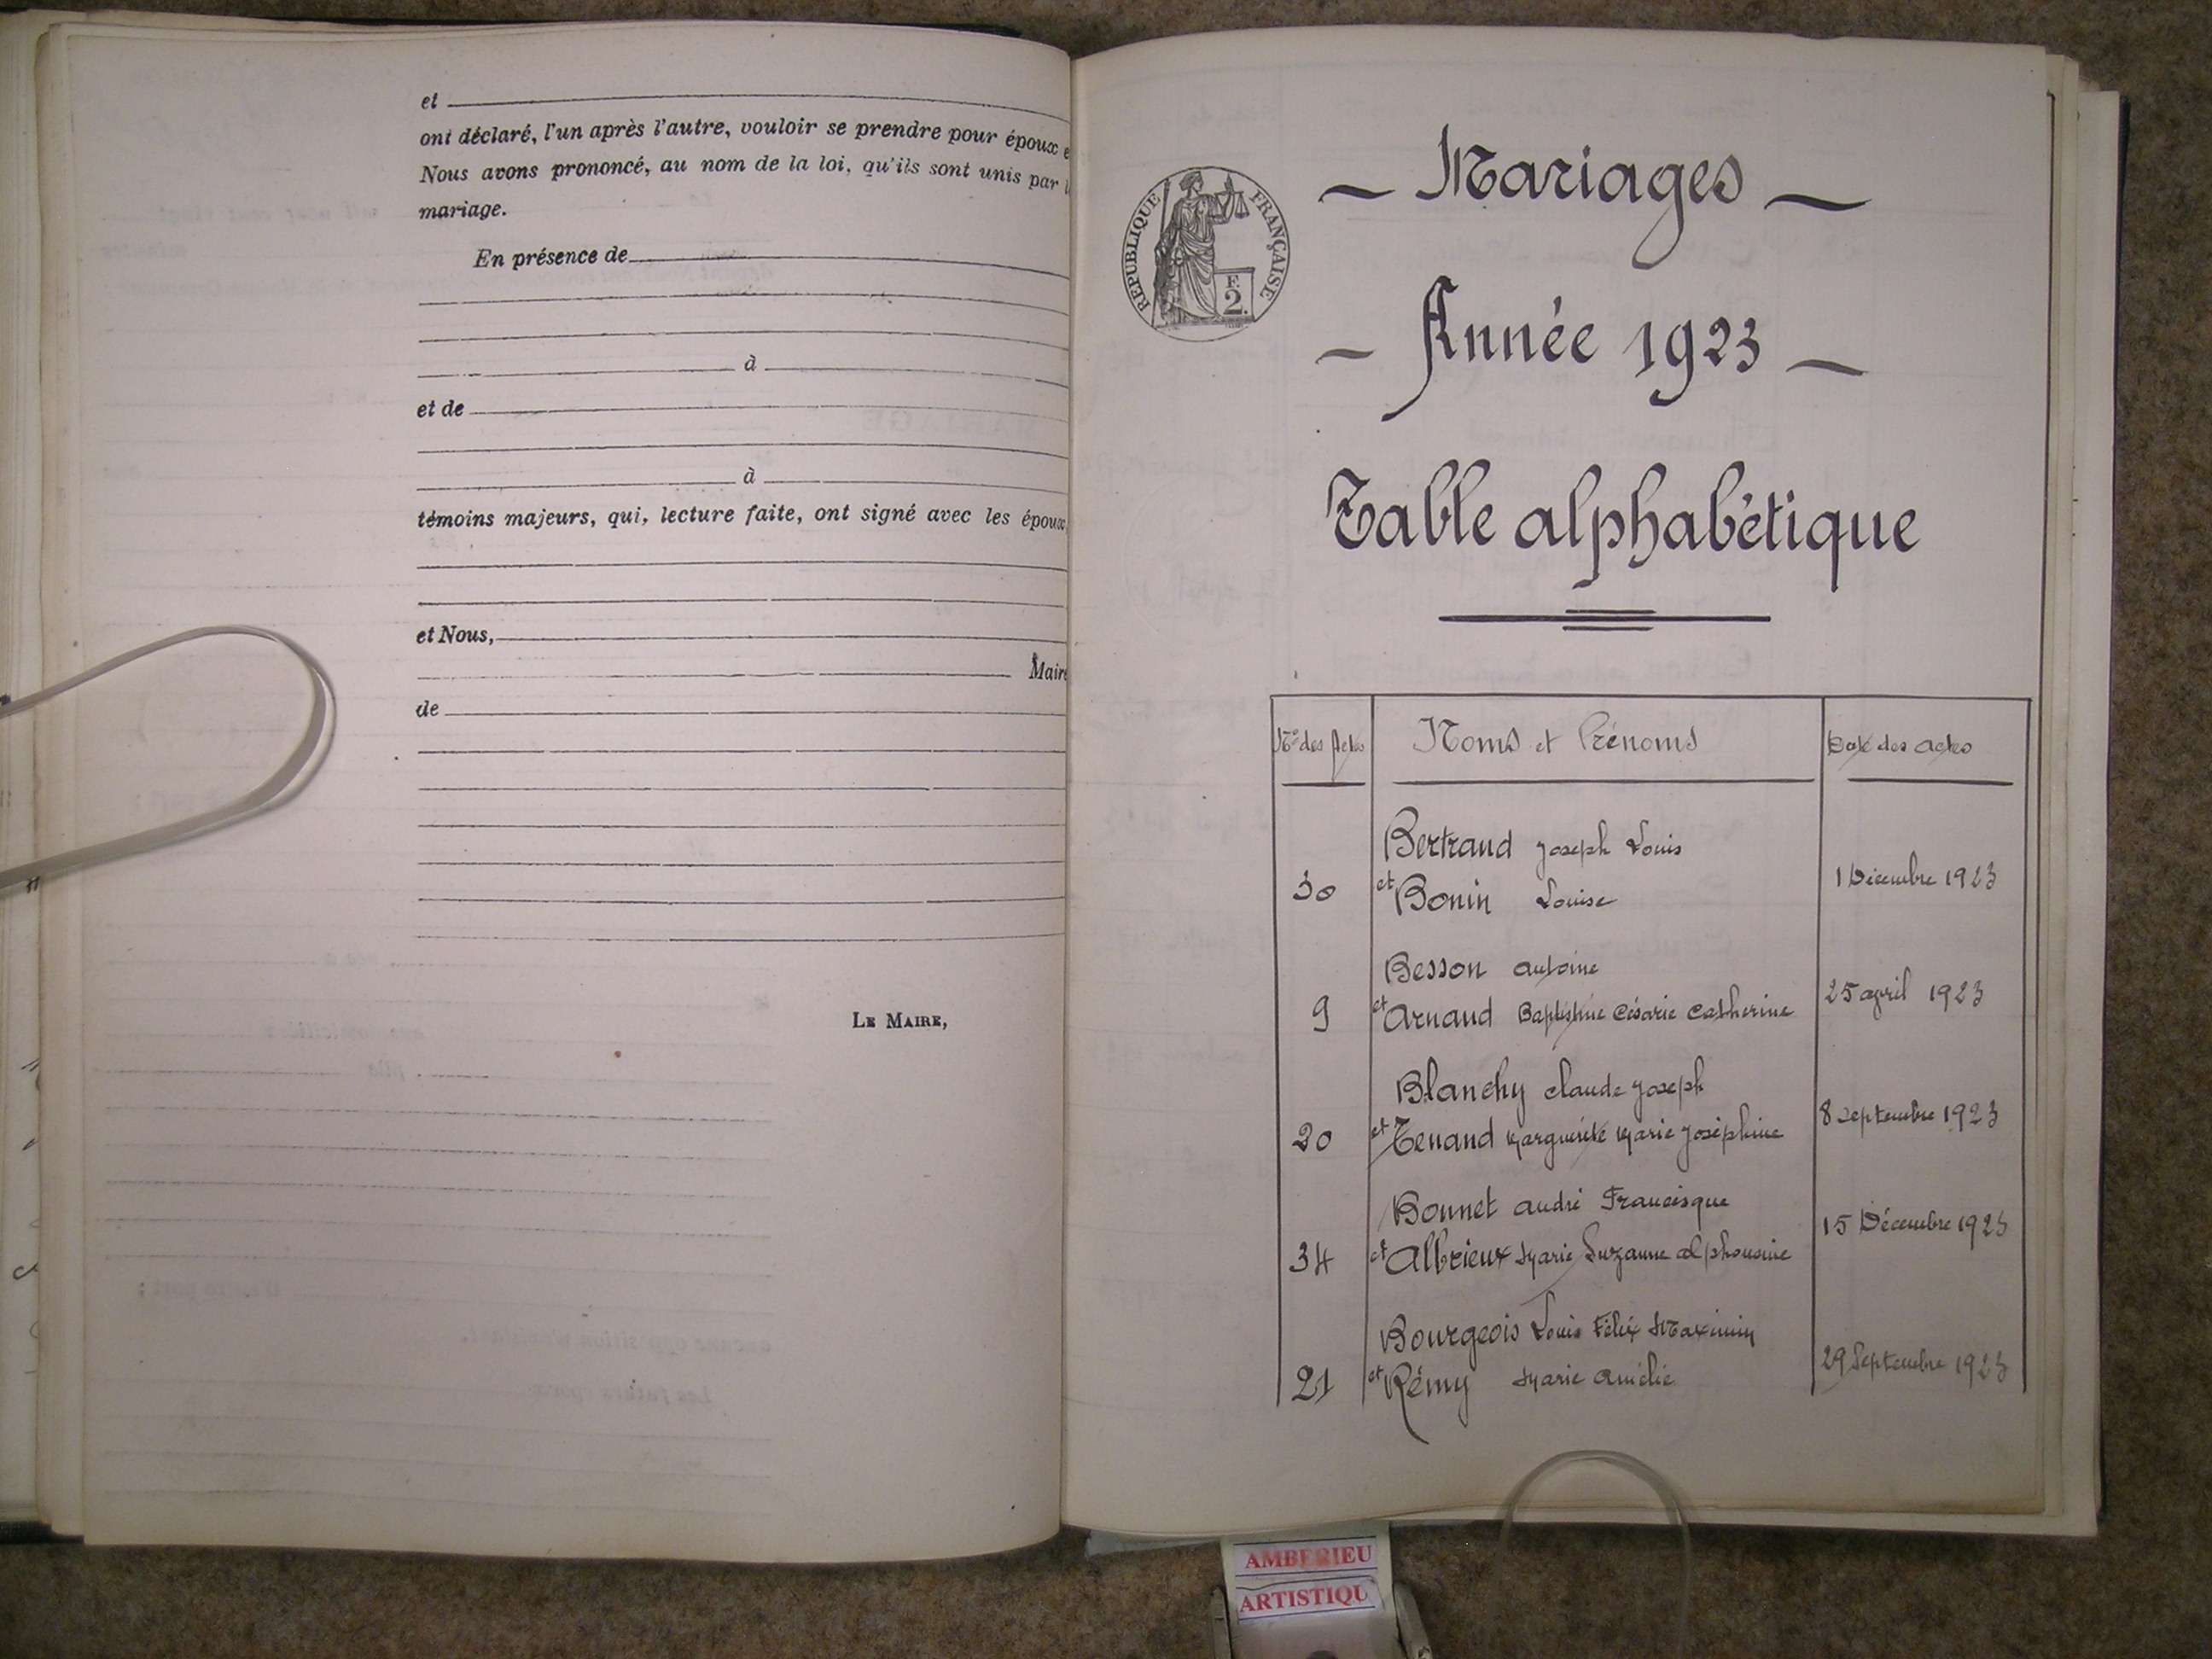 et
ont déclaré, l'un après l'autre, vouloir se prendre pour époux e
Nous avons prononcé, au nom de la loi, qu'ils sont unis par l
mariage.
En présence de
à
et de
à
témoins majeurs, qui, lecture faite, ont signé avec les époux
et Nous,
Maire
de
LE MAIRE,
RÉPUBLIQUE FRANÇAISE
F.
2.
— Mariages —
— Année 1923 —
Table alphabétique
Nos des Actes Noms et Prénoms Date des actes
Bertrand Joseph Louis
30 et Bonin Louise 1 Décembre 1923
Besson Antoine
9 et Arnaud Baptistine Césarie Catherine 25 avril 1923
Blanchy Claude Joseph
20 et Tenand Marguerite Marie Joséphine 8 Septembre 1923
Bonnet André Francisque
34 et Albrieux Marie Suzanne Alphonsine 15 Décembre 1923
Bourgeois Louis Félix Maximin
21 et Rémy Marie Amélie 29 Septembre 1923
AMBERIEU
ARTISTIQU